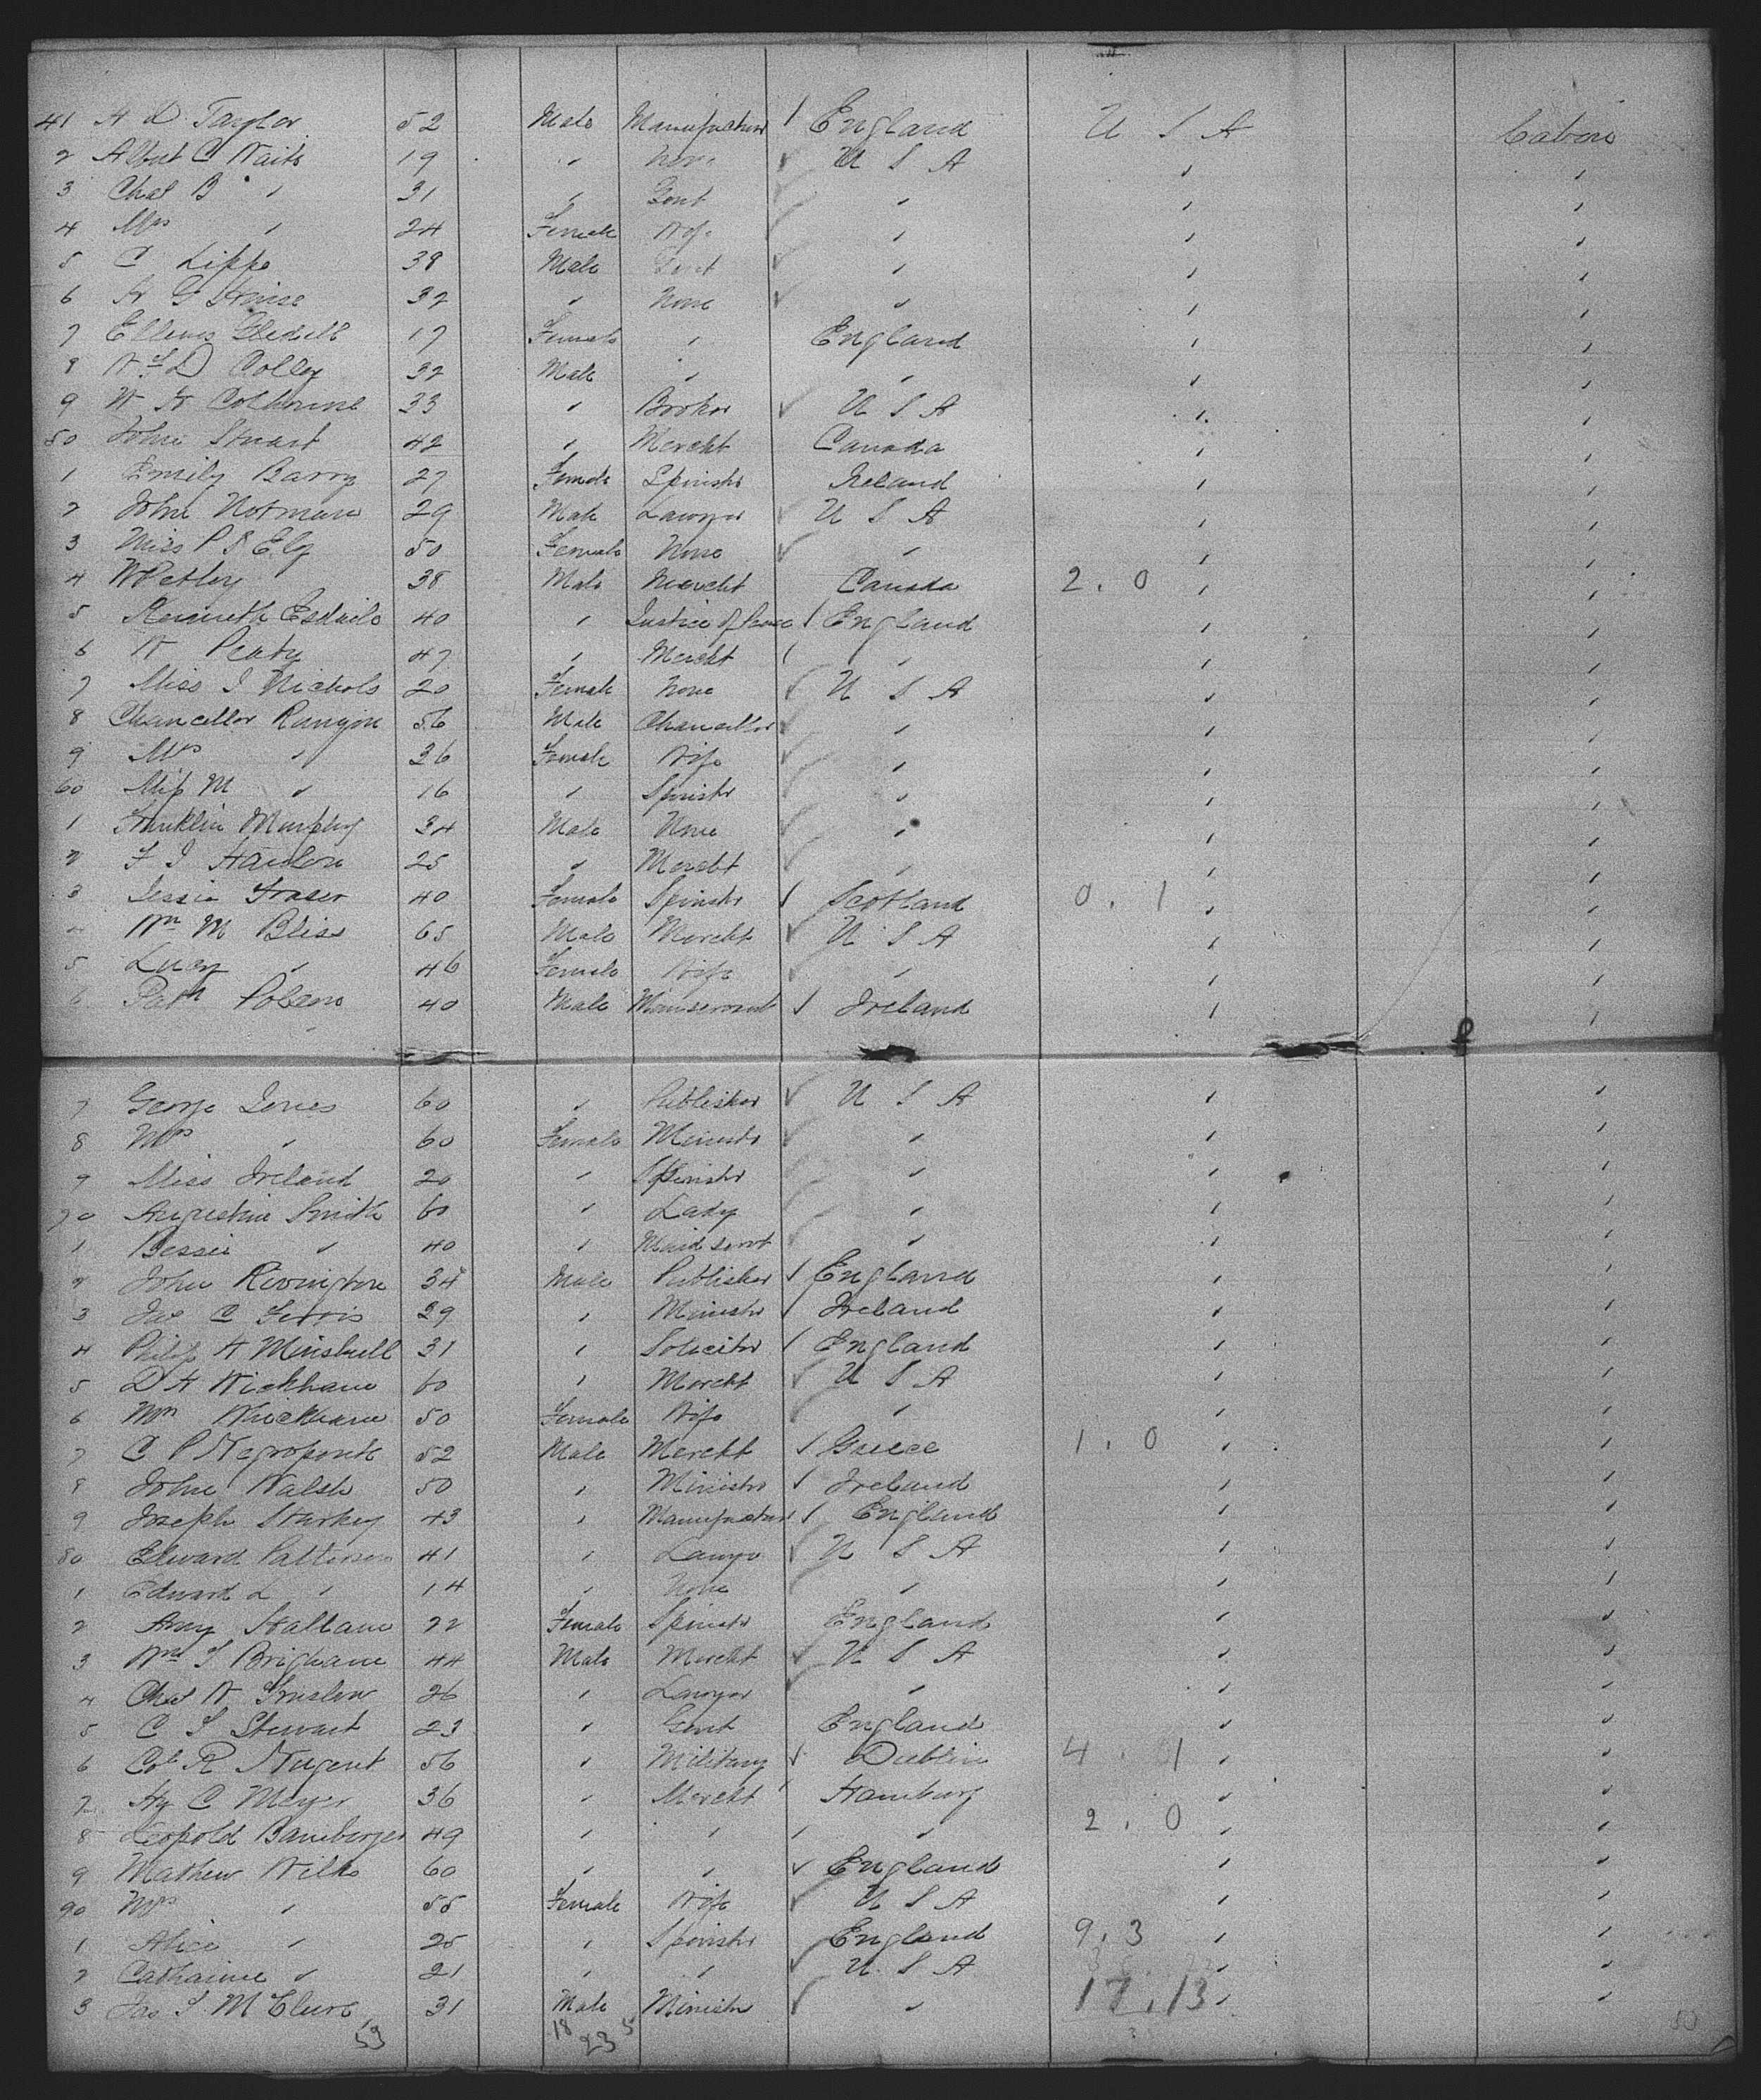 41 H D Taylor 52 Male Manufacturer England U S A Cabin
2 Albert C Waite 19 " None U S A " "
3 Chas B " 31 " Gent " " "
4 Mrs " 24 Female Wife " " "
5 C Lippe 38 Male Gent " " "
6 32 " None " " "
7 17 Female " England " "
8 Colley 32 Male " " " "
9 W H 33 " Broker U S A " "
50 John Stuart 42 " Mercht Canada " "
1 Emily Barry 27 Female Spinster Ireland " "
2 John Notman 29 Male Lawyer U S A " "
3 Miss P S Ely 50 Female None " " "
4 W Petley 38 Male Mercht Canada 2.0 " "
5 Kenneth Esdaile 40 " Justice of Peace England " "
6 W Peaty 47 " Mercht " " "
7 Miss I Nichols 20 Female None U S A " "
8 Chancellor Runyon 56 Male Chancellor " " "
9 Mrs " 36 Female Wife " " "
60 Miss M " 16 " Spinster " " "
1 Franklin Murphy 34 Male None " " "
2 F J 25 " Mercht " " "
3 Jessie Fraser 40 Female Spinster Scotland 0.1 " "
4 Wm M Bliss 65 Male Mercht U S A " "
5 Lucy " 46 Female Wife " " "
6 Patk 40 Male Manservant Ireland " "
7 George Jones 60 " Publisher U S A " "
8 Mrs " 60 Female Minister " " "
9 Miss Ireland 20 " Spinster " " "
70 Augustine Smith 60 " Lady " " "
1 Bessie " 40 " Maid servt " " "
2 John Rivington 34 Male Publisher England " "
3 Jas C Ferris 29 " Minister Ireland " "
4 Philip H Minshull 31 " Solicitor England " "
5 D H Wickham 60 " Mercht U S A " "
6 Mrs Whickham 50 Female Wife " " "
7 C P Negroponte 52 Male Mercht Greece 1.0 " "
8 John Walsh 50 " Minister Ireland " "
9 Joseph Starkey 43 " Manufacturer England " "
80 Edward Patterson 41 " Lawyer U S A " "
1 Edward L " 14 " None " " "
2 Amy Hallam 22 Female Spinster England " "
3 Wm T Brigham 44 Male Mercht U S A " "
4 Chas W 26 " Lawyer " " "
5 C S Stewart 23 " Gent England " "
6 Col R Nugent 56 " Military Dublin 4.1 " "
7 Hy C Meyer 36 " Mercht Hamburg " "
8 Leopold Bamberger 49 " " " 2.0 " "
9 Mathew Wilks 60 " " England " "
90 Mrs " 55 Female Wife U S A " "
1 Alice " 25 " Spinster England 9.3 " "
2 Catharine " 21 " " U S A " "
3 Jas S McClure 31 Male Minister " 17.13 " "
53 18 23 5